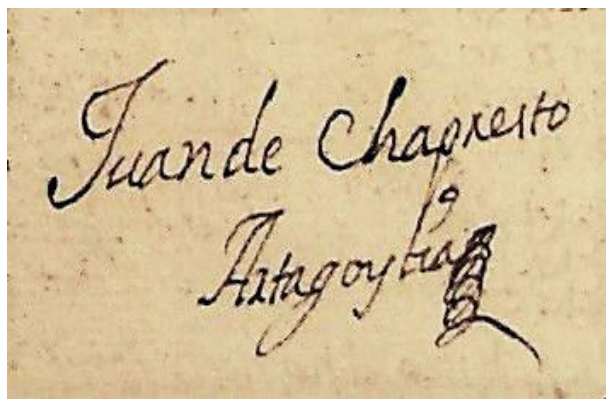 Juan de Chapresto
Artagoytia